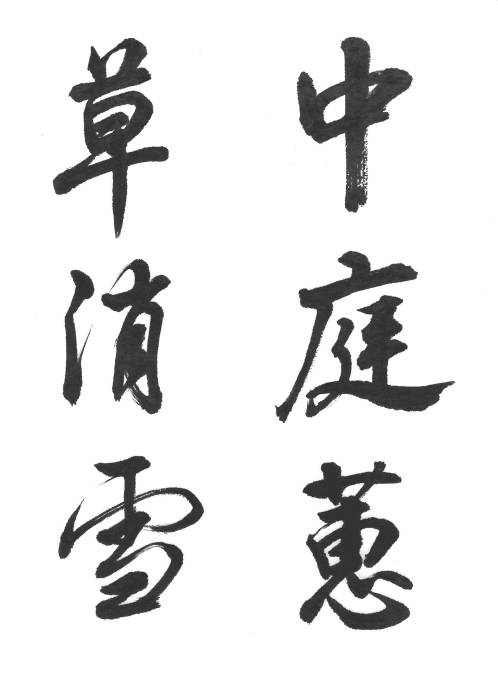 中庭蕙
草消雪